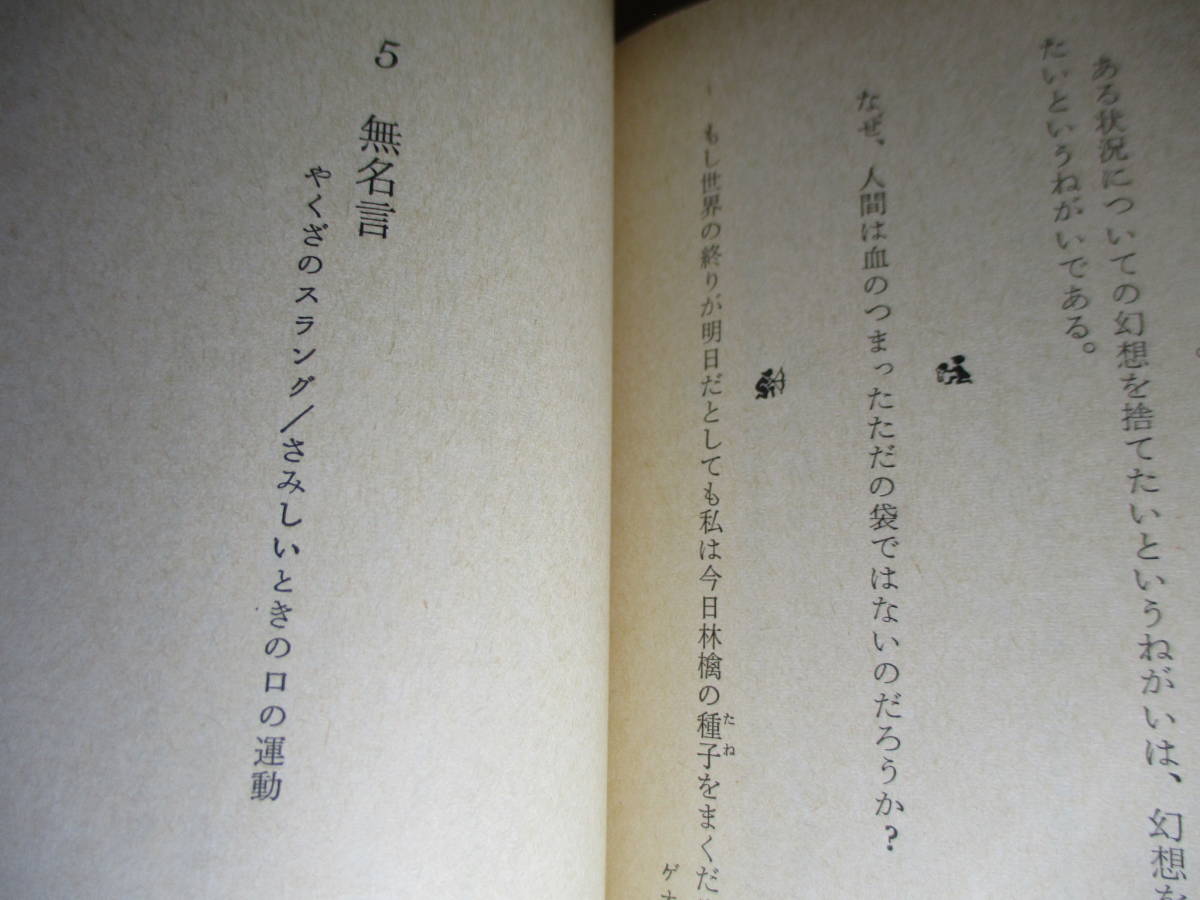 ある状況についての幻想を捨てたいというねがいは、幻想を
たいというねがいである。
なぜ、人間は血のつまったただの袋ではないのだろうか?
もし世界の終りが明日だとしても私は今日林檎の種子をまくだ
たね
ゲオ
5 無名言
やくざのスラング/さみしいときの口の運動